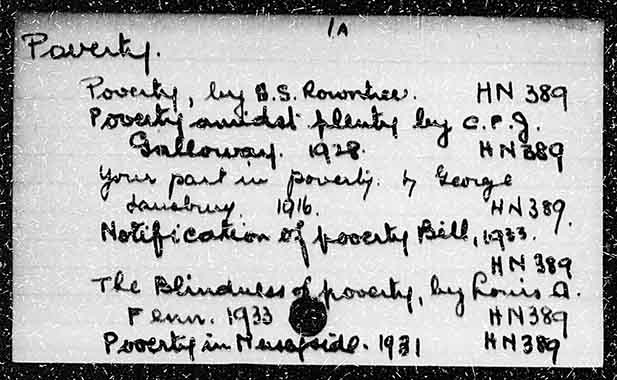 1A
Poverty.
Poverty, by B.S. Rowntree. HN 389
Poverty amidst plenty by C.P.J.
Galloway. 1928. HN389
Your part in poverty. by George
Lansbury. 1916. HN 389.
Notification of poverty Bill, 1933.
HN 389
The Blindness of poverty, by Louis A.
Fenn. 1933 HN389
Poverty in Merseyside. 1931 HN389